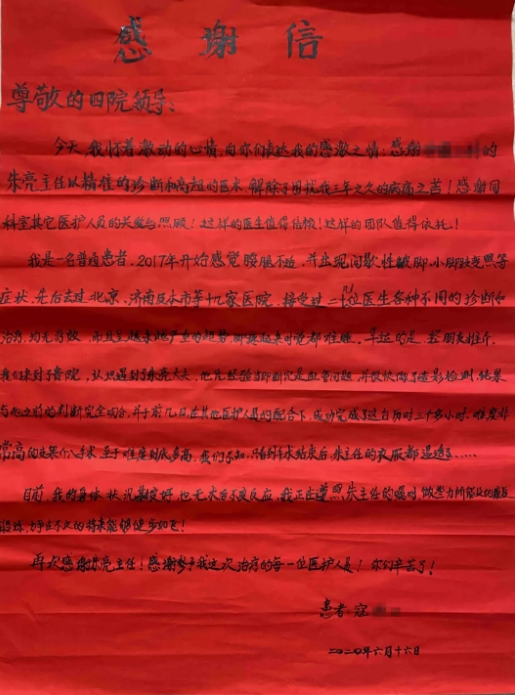 感谢信
尊敬的四院领导：
今天，我怀着激动的心情，向你们表达我的感激之情！感谢 的
朱亮主任以精准的诊断和高超的医术，解除了困扰我三年之久的病痛之苦！感谢同
科室其它医护人员的关爱与照顾！这样的医生值得信赖！这样的团队值得依托！
我是一名普通患者，2017年开始感觉腰腿不适，并出现间歇性跛脚、小腿 等
症状，先后去过北京、济南及本市等十几家医院，接受过二十几位医生各种不同的诊断和
治疗，均无疗效，而且呈越来越严重的趋势， 起来吃饭都难。幸运的是，经朋友推介，
我们来到了贵院，认识遇到了朱亮大夫，他凭经验当即断定是血管问题，并很快做了造影检测，结果
与他之前的判断完全吻合，并于前几日在其他医护人员的配合下，成功完成了这台历时三个多小时、难度非
常高的支架介入手术。至于难度到底多高，我们不知，只看到手术结束后，朱主任的衣服都湿透了……
目前，我的身体状况 良好，也无术后不良反应，我正在遵照朱主任的嘱咐，做些力所能及的
锻炼，力争在不久的将来能够健步如飞！
再次感谢朱亮主任！感谢参与我这次治疗的每一位医护人员！你们辛苦了！
患者：寇
二〇二〇年六月十六日